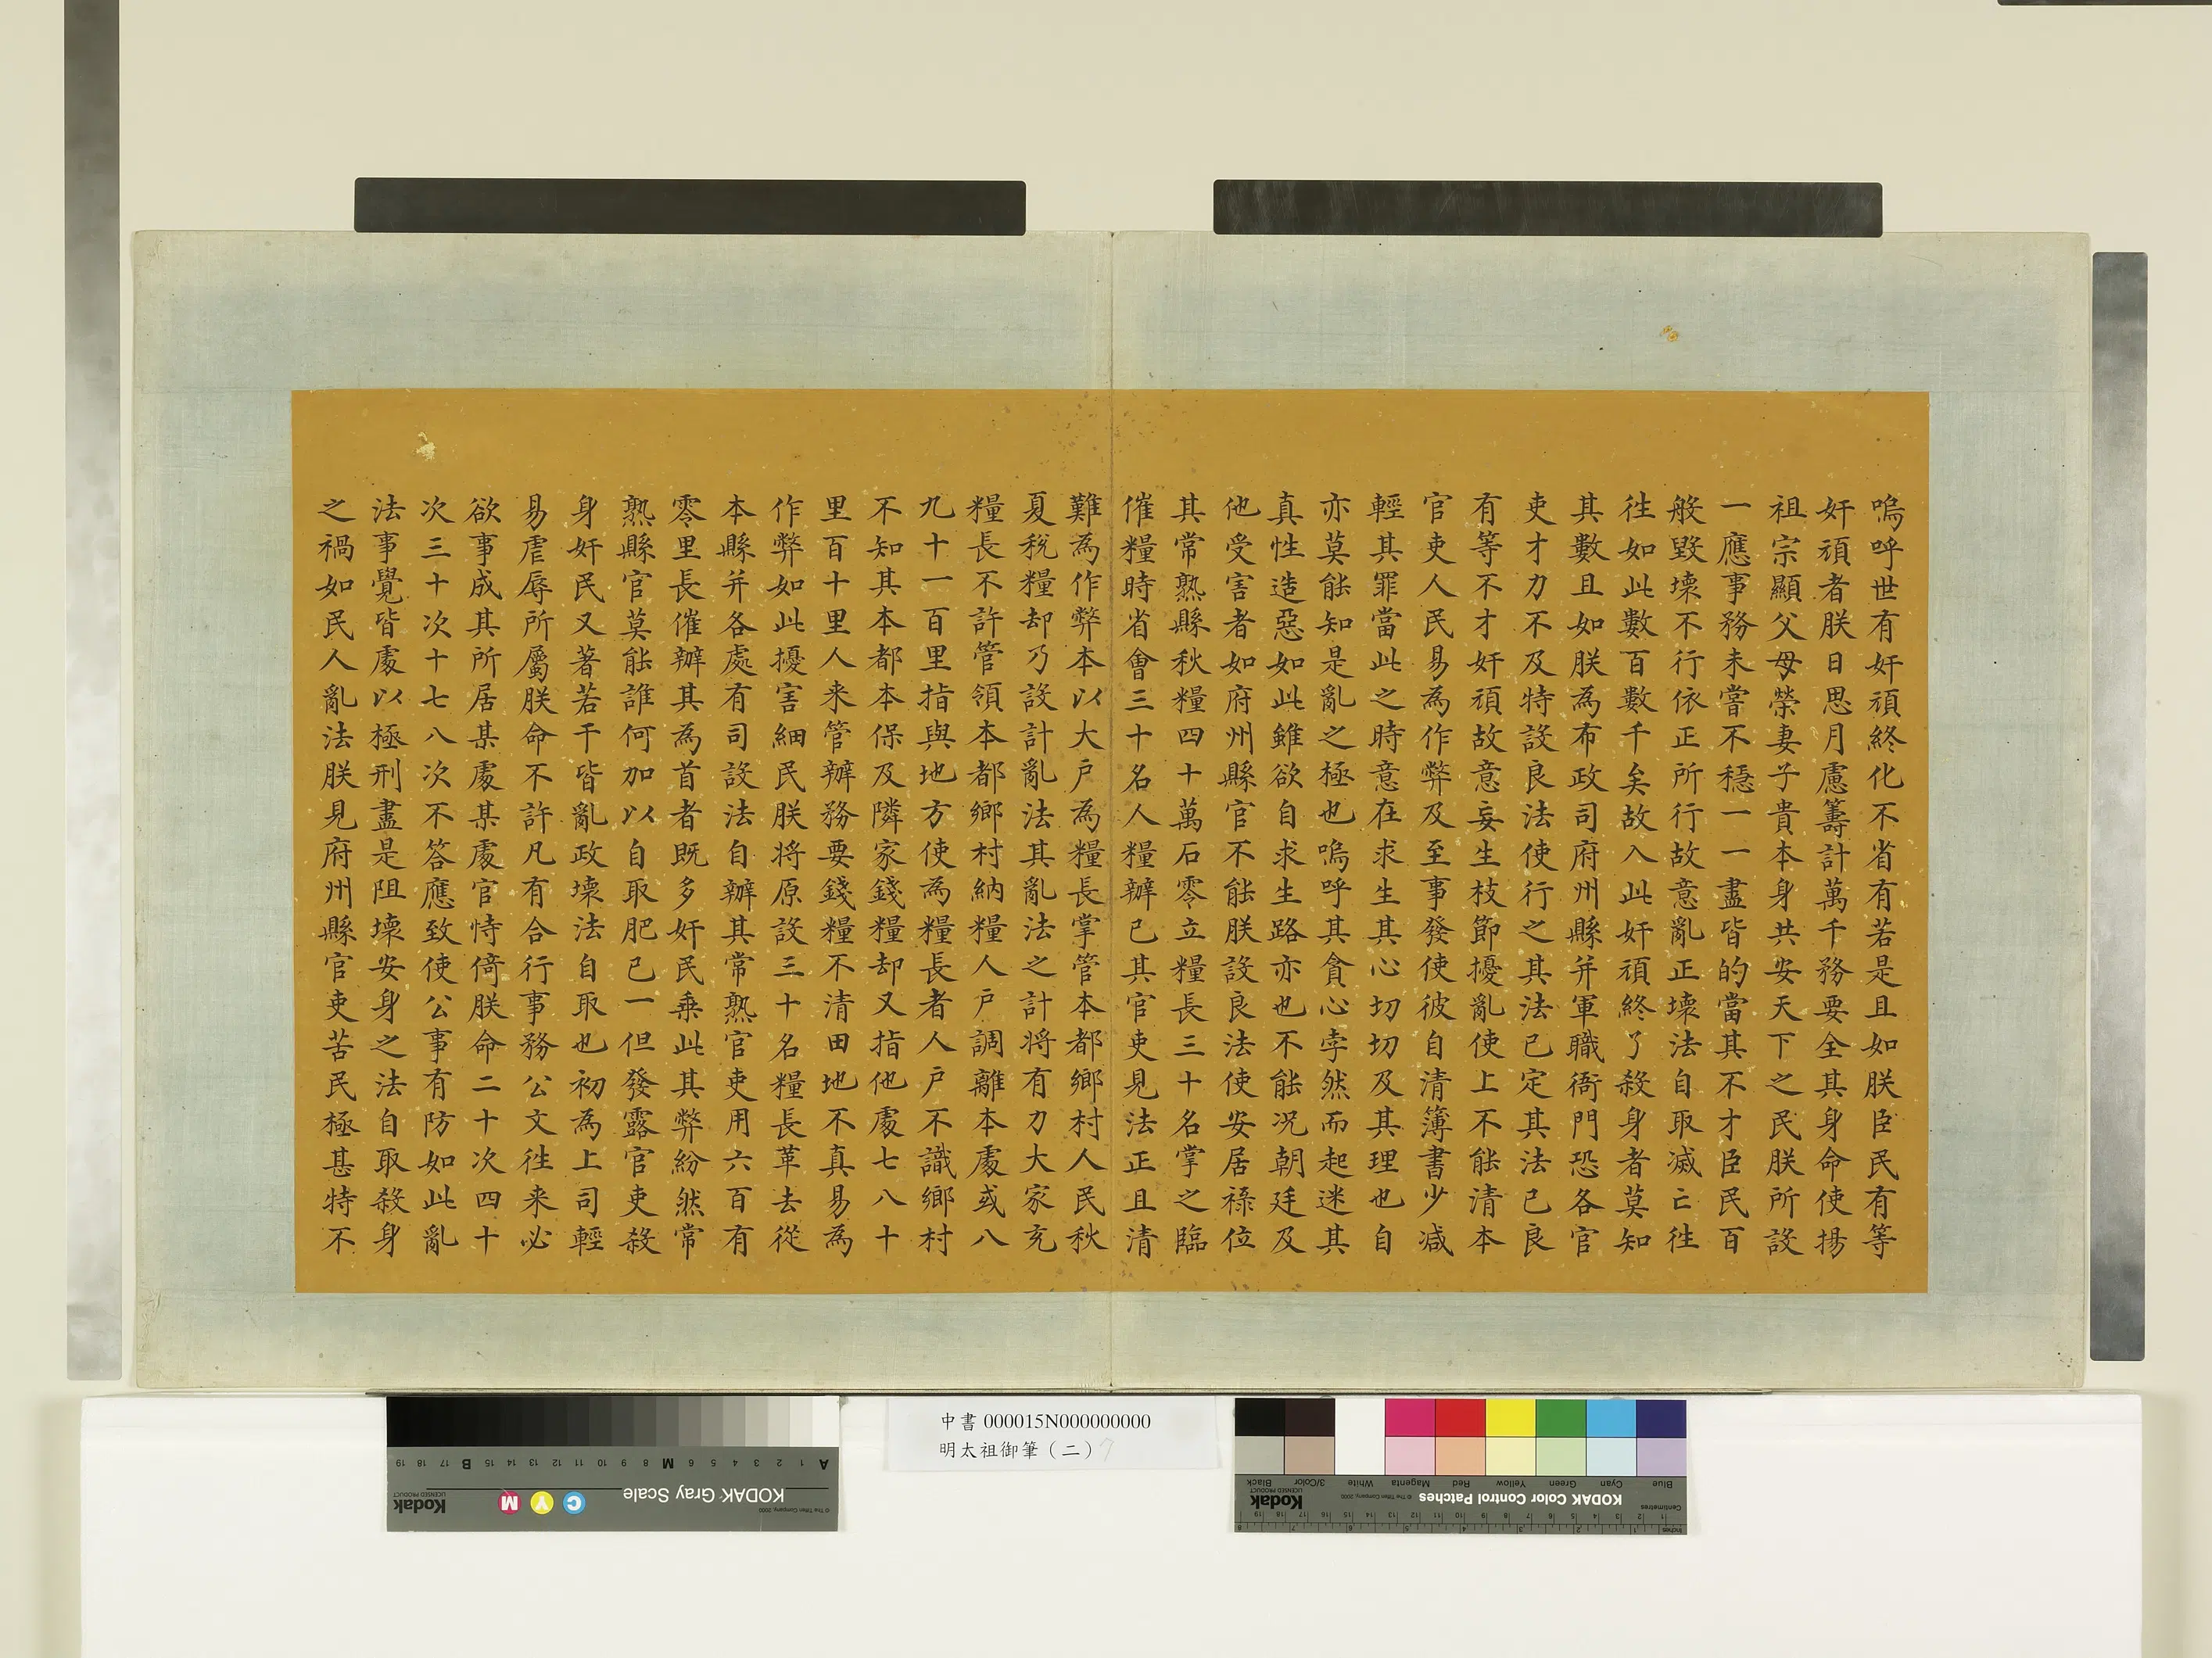 嗚呼世有奸頑終化不省有若是且如朕臣民有等
奸頑者朕日思月慮籌計萬千務要全其身命使揚
祖宗顯父母榮妻子貴本身共安天下之民朕所設
一應事務未嘗不穩一一盡皆的當其不才臣民百
般毀壞不行依正所行故意亂正壞法自取滅亡徃
徃如此數百數千矣故入此奸頑終了殺身者莫知
其數且如朕為布政司府州縣并軍職衙門恐各官
吏才力不及特設良法使行之其法已定其法已良
有等不才奸頑故意妄生枝節擾亂使上不能清本
官吏人民易為作弊及至事發使彼自清簿書少减
輕其罪當此之時意在求生其心切切及其理也自
亦莫能知是亂之極也嗚呼其貪心孛然而起迷其
真性造惡如此雖欲自求生路亦也不能况朝廷及
他受害者如府州縣官不能朕設良法使安居祿位
其常熟縣秋糧四十萬石零立糧長三十名掌之臨
催糧時省會三十名人糧辦已其官吏見法正且清
難為作弊本以大戶為糧長掌管本都鄉村人民秋
夏稅糧却乃設計亂法其亂法之計將有力大家充
糧長不許管領本都鄉村納糧人戶調離本處或八
九十一百里指與地方使為糧長者人戶不識鄉村
不知其本都本保及隣家錢糧却又指他處七八十
里百十里人来管辦務要錢糧不清田地不真易為
作弊如此擾害細民朕將原設三十名糧長革去從
本縣并各處有司設法自辦其常熟官吏用六百有
零里長催辦其為首者既多奸民乗此其弊紛然常
熟縣官莫能誰何加以自取肥己一但發露官吏殺
身奸民又著若干皆亂政壞法自取也初為上司輕
易虐辱所屬朕命不許凡有合行事務公文徃来必
欲事成其所居某處某處官恃倚朕命二十次四十
次三十次十七八次不答應致使公事有防如此亂
法事覺皆處以極刑盡是阻壞安身之法自取殺身
之禍如民人亂法朕見府州縣官吏苦民極甚特不
中書 000015N000000000
明太祖御筆（二）7
KODAK Gray Scale
© The Tiffen Company, 2000
Kodak
LICENSED PRODUCT
C Y M
A 1 2 3 4 5 6 M 8 9 10 11 12 13 14 15 B 17 18 19
KODAK Color Control Patches
© The Tiffen Company, 2000
Kodak
LICENSED PRODUCT
Blue Cyan Green Yellow Red Magenta White 3/Color Black
Inches
Centimetres